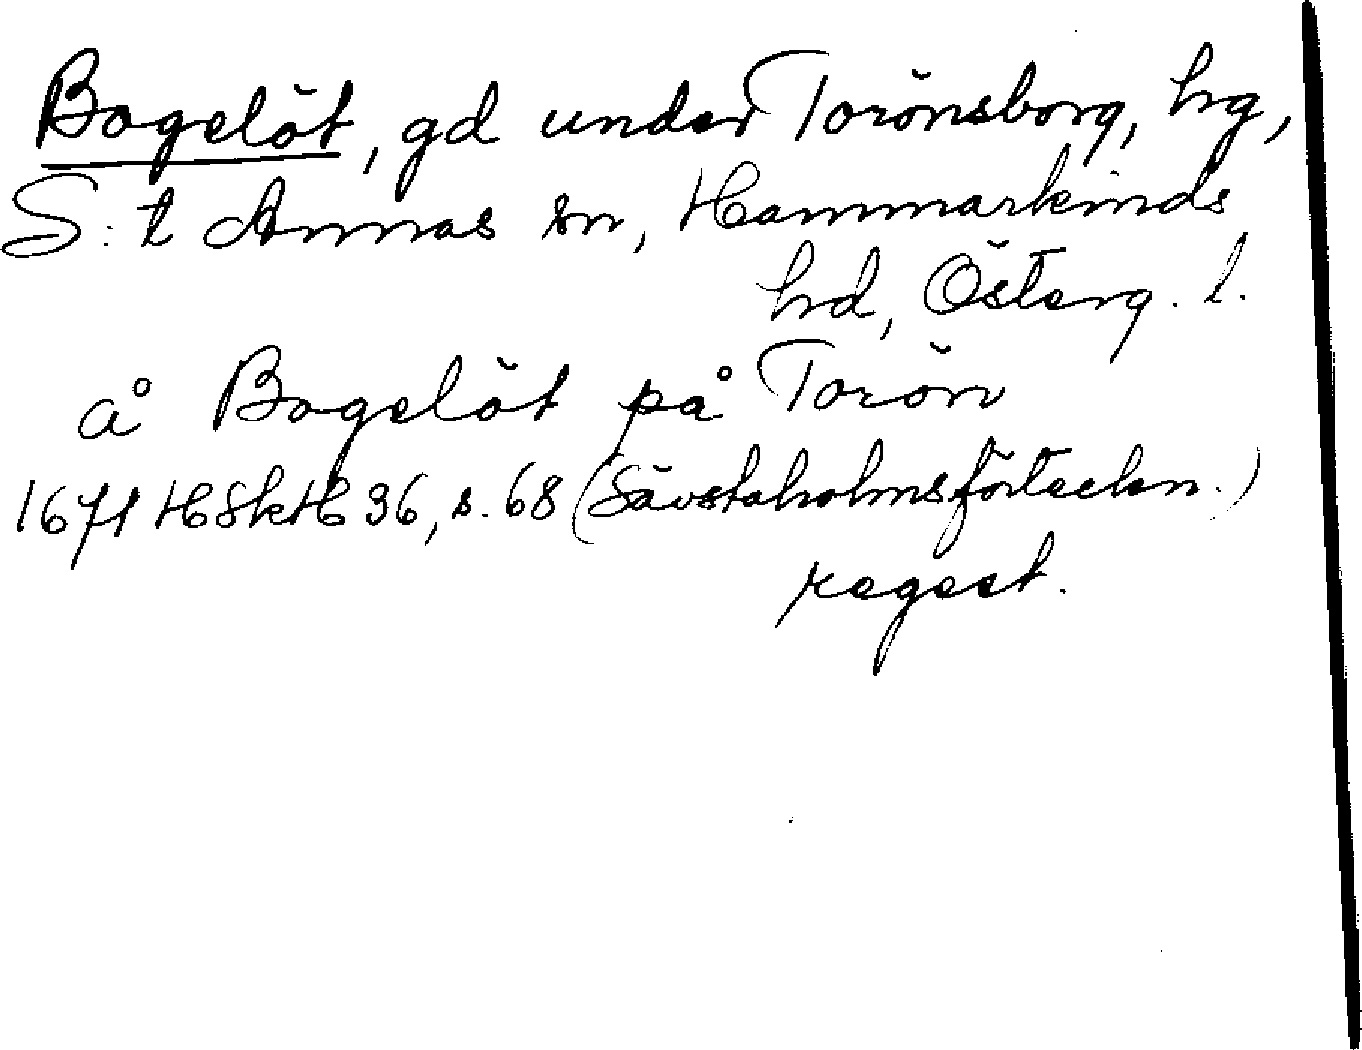 Bogelöt, gd under Torönsborg, hg,
S:t Annas sn, Hammarkinds
hd, Österg. l.
å Bogelöt på Torön
1671 HSkH 36, s. 68 (Sävstaholmsförteckn.)
regest.